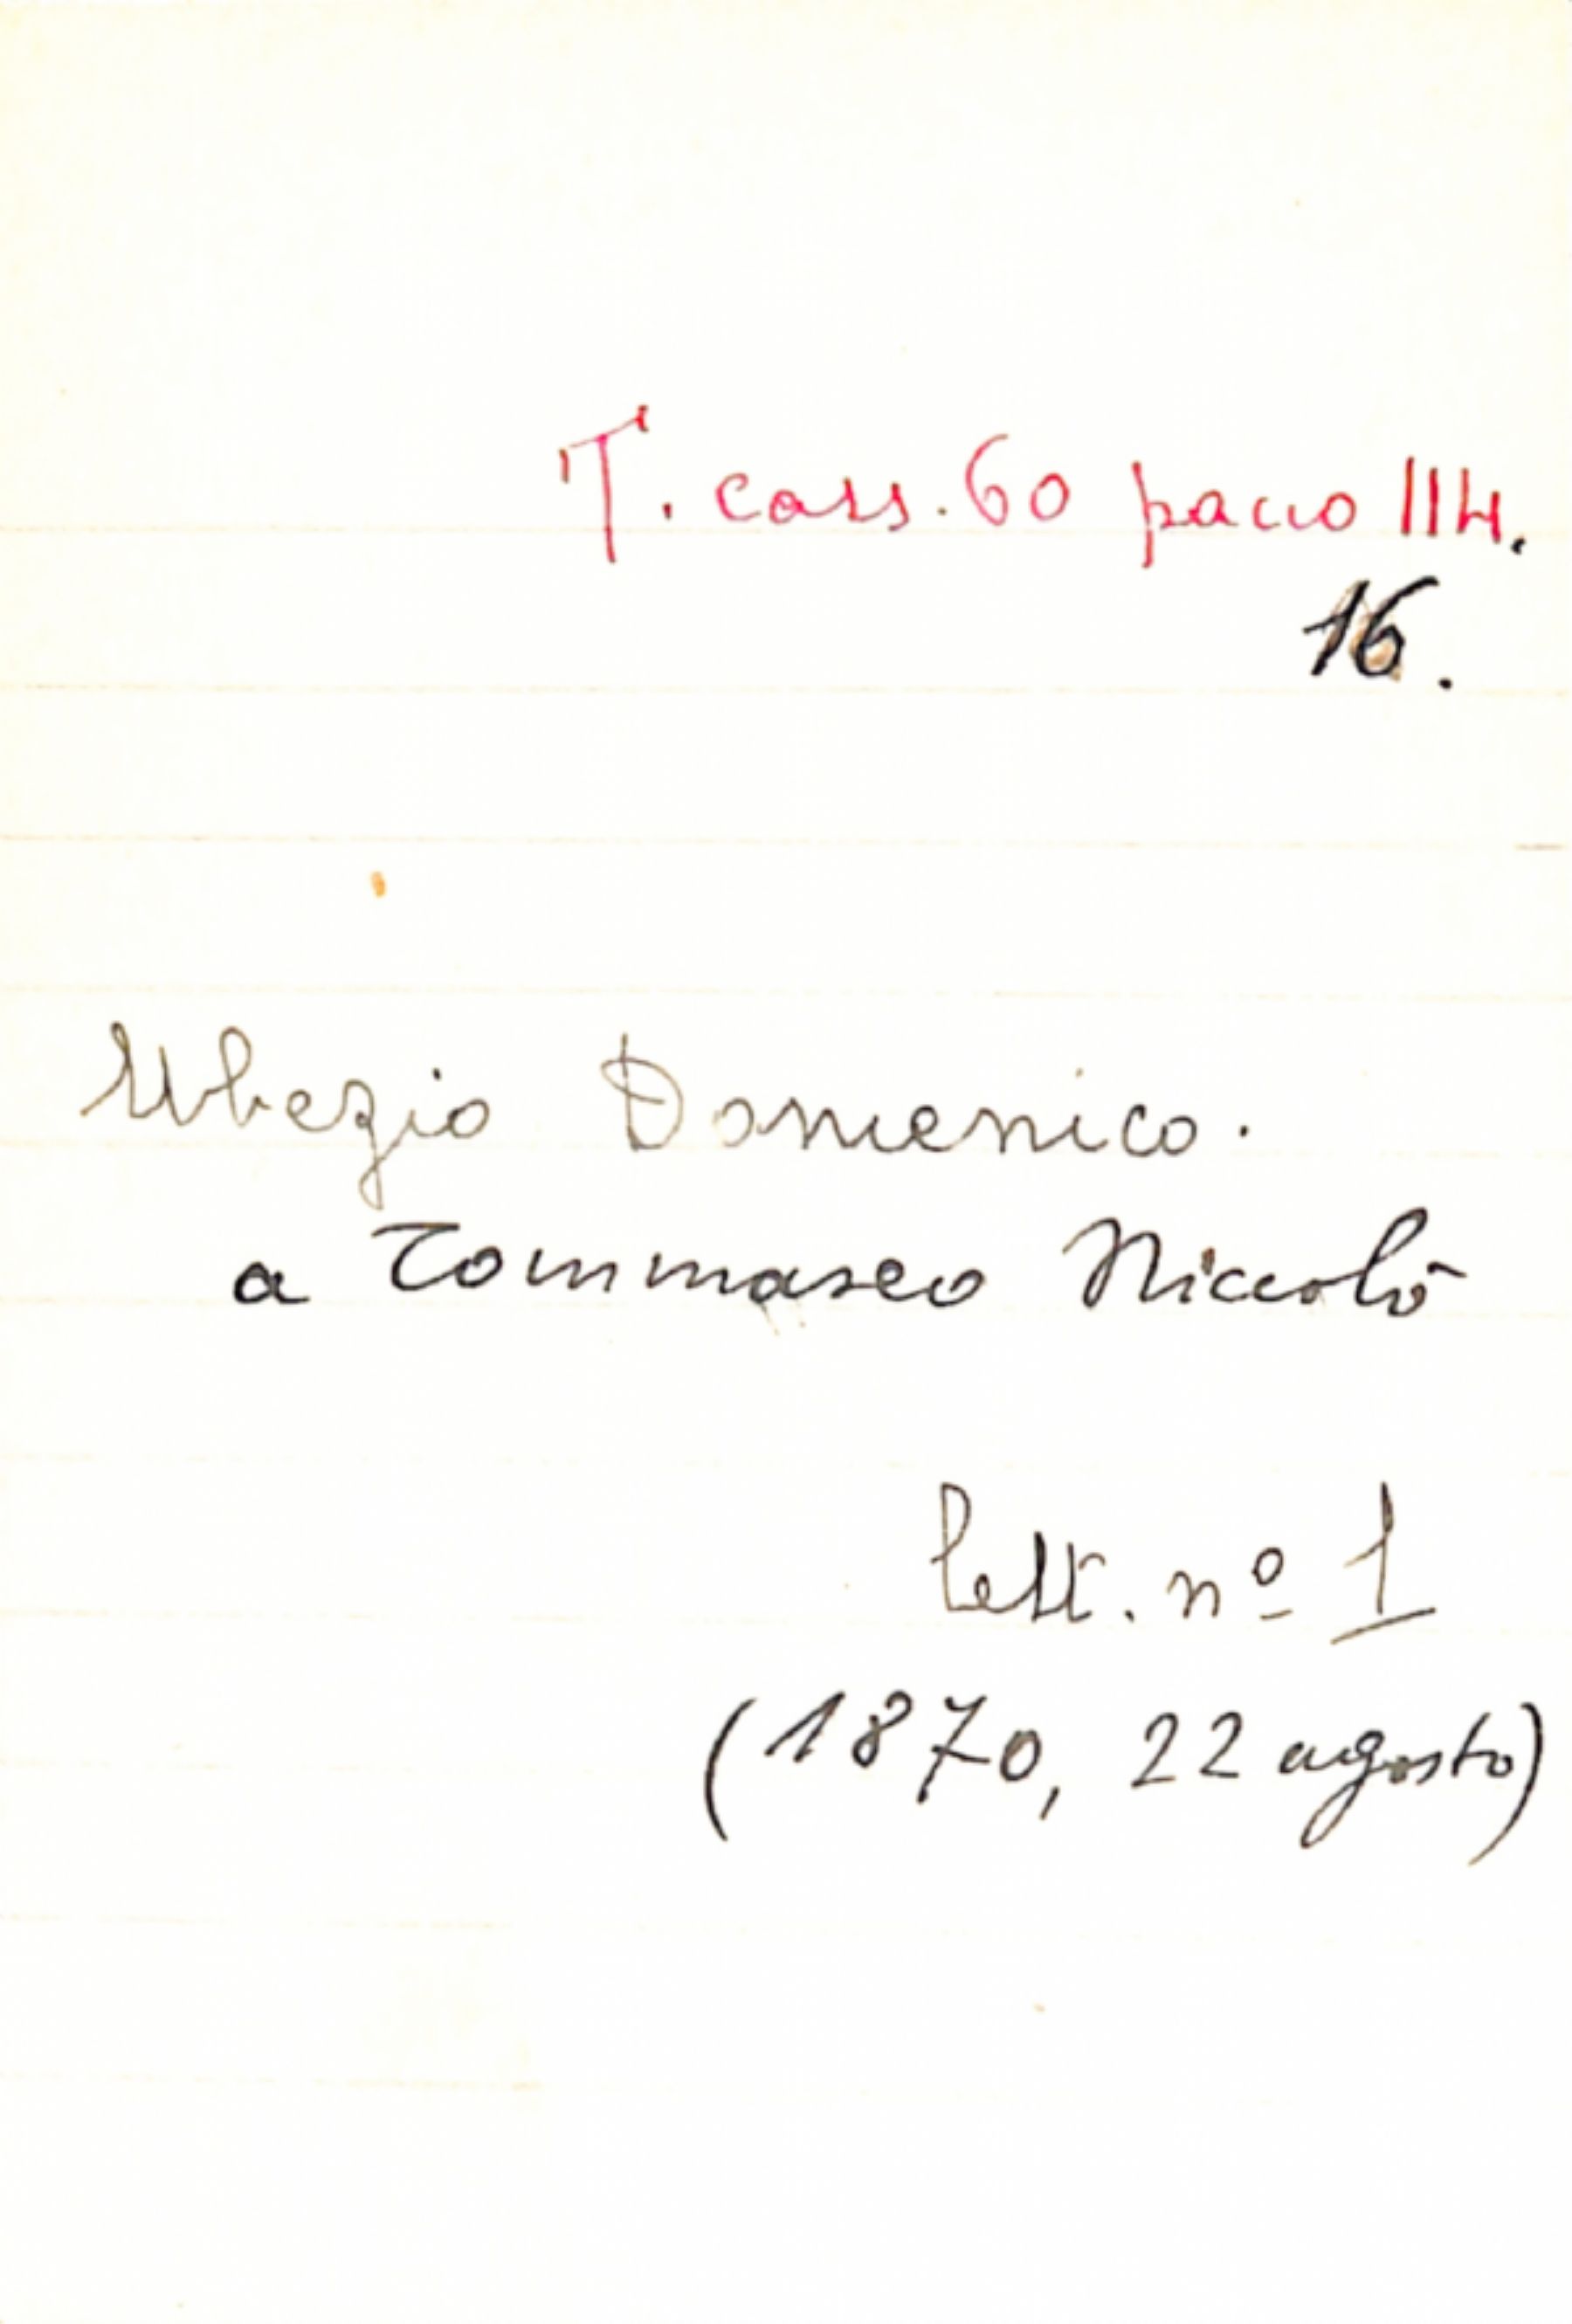 T. cass. 60 pacco 114.
16.
Ubezio Domenico.
a Tommaseo Niccolò
lett. nº 1
(1870, 22 agosto)